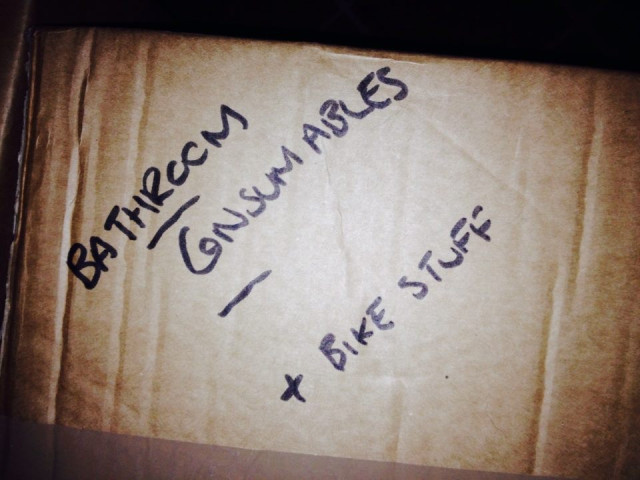 BATHROOM
- CONSUMABLES
-
+ BIKE STUFF